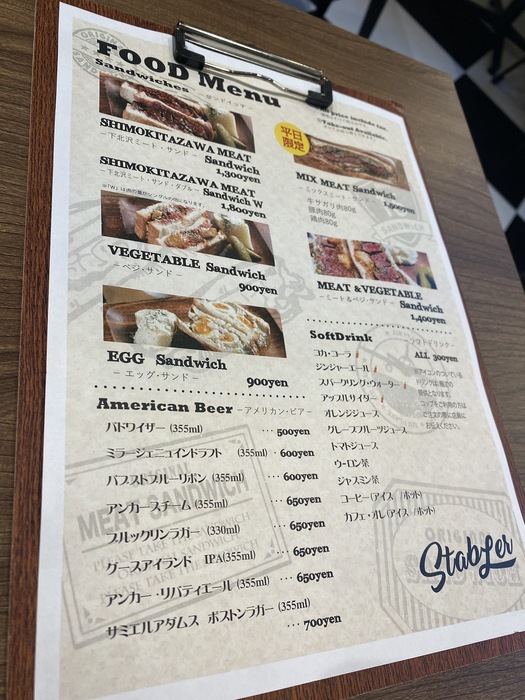 FOOD Menu
Sandwiches －サンドイッチ－
Price include tax.
Takeout Available.
SHIMOKITAZAWA MEAT
－下北沢ミート・サンド－ Sandwich
1,300yen
SHIMOKITAZAWA MEAT
－下北沢ミート・サンド・ダブル－ Sandwich W
1,800yen
VEGETABLE Sandwich
－ベジ・サンド－
900yen
EGG Sandwich
－エッグ・サンド－
900yen
平日
限定
MIX MEAT Sandwich
－ミックスミート・サンド－ 1,500yen
牛サガリ肉80g
豚肉80g
鶏肉80g
MEAT &VEGETABLE
－ミート&ベジ・サンド－ Sandwich
1,400yen
American Beer －アメリカン・ビアー－
バドワイザー (355ml)
･･･500yen
ミラージェニュインドラフト (355ml)
･･･600yen
パブストブルーリボン (355ml)
･･･600yen
アンカースチーム (355ml)
･･･650yen
ブルックリンラガー (330ml)
･･･650yen
グースアイランド IPA(355ml)
･･･650yen
アンカー・リバティエール (355ml)
･･･650yen
サミエルアダムス ボストンラガー (355ml)
･･･700yen
SoftDrink －ソフトドリンク－
ALL 300yen
コカ・コーラ
ジンジャーエール
スパークリング・ウォーター
アップルサイダー
オレンジジュース
グレープフルーツジュース
トマトジュース
ウーロン茶
ジャスミン茶
コーヒー(アイス/ホット)
カフェ・オレ(アイス/ホット)
ORIGINAL
MEAT SANDWICH
PLEASE TAKE
SANDWICH
Stabler